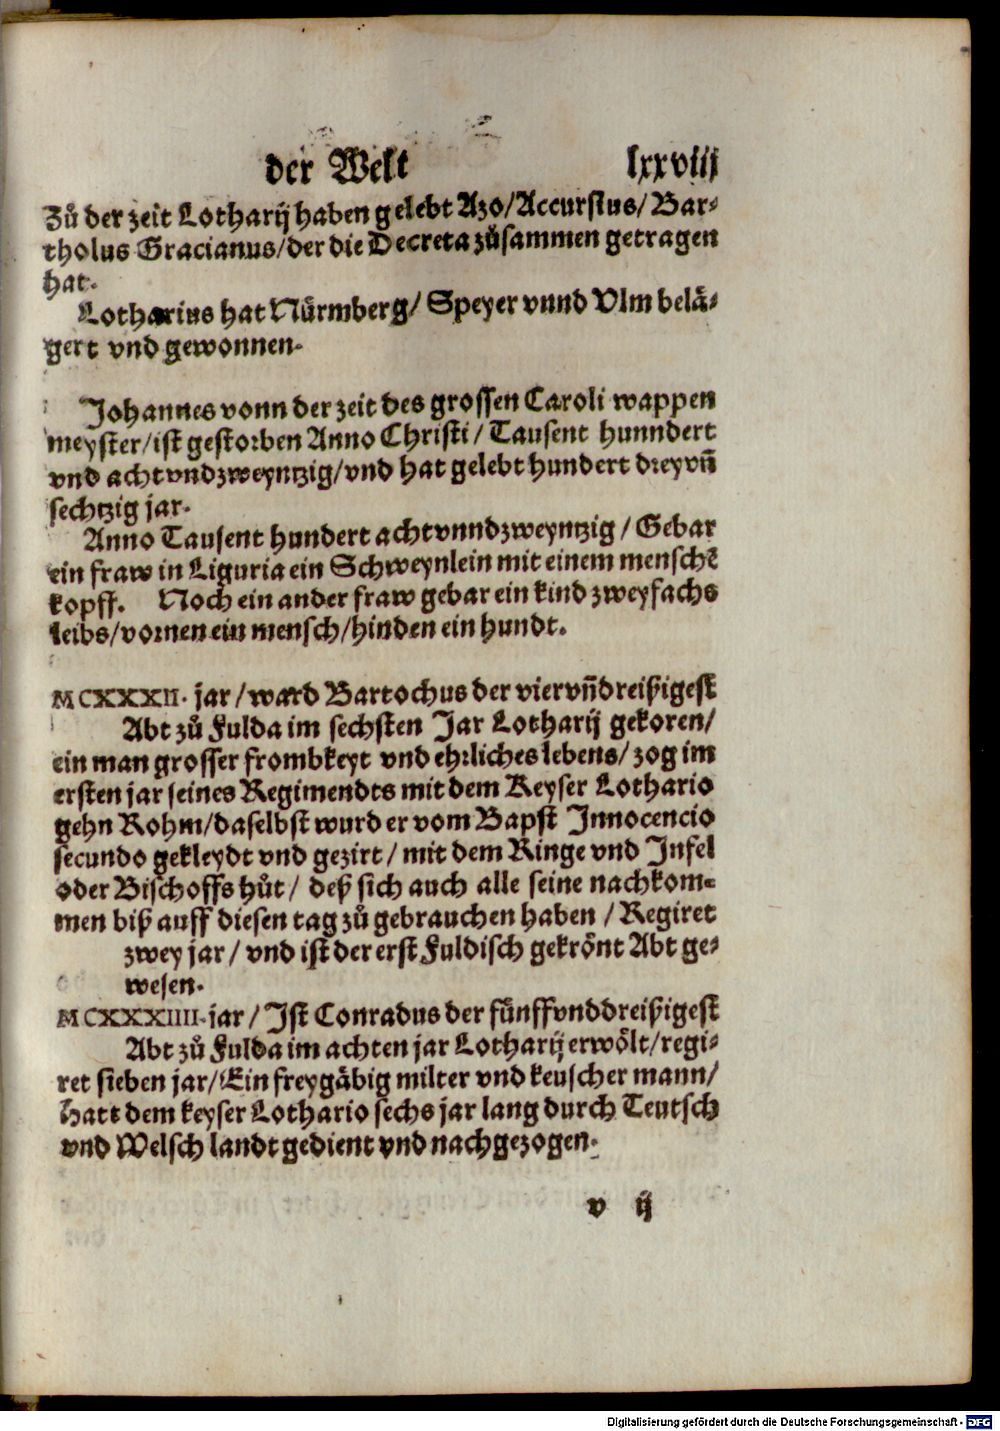 der Welt lxxviij
Zů der zeit Lotharij haben gelebt Azo/Accursius/ Bar-
tholus Gracianus/der die Decreta zůsammen getragen
hat.
Lotharius hat Nürmberg/ Speyer vnnd Vlm belä-
gert vnd gewonnen.
Johannes vonn der zeit des grossen Caroli wappen
meyster/ist gestorben Anno Christi/ Tausent hunndert
vnd acht vndzweyntzig/vnd hat gelebt hundert dreyvn̄
sechtzig jar.
Anno Tausent hundert achtvnndzweyntzig/Gebar
ein fraw in Liguria ein Schweynlein mit einem menschē
kopff. Noch ein ander fraw gebar ein kind zweyfachs
leibs/vornen ein mensch/hinden ein hundt.
MCXXXII. jar/ward Bartochus der viervn̄dreißigest
Abt zů Fulda im sechsten Jar Lotharij gekoren/
ein man grosser frombkeyt vnd ehrliches lebens/zog im
ersten jar seines Regimendts mit dem Keyser Lothario
gehn Rohm/daselbst wurd er vom Bapst Innocencio
secundo gekleydt vnd gezirt/mit dem Ringe vnd Infel
oder Bischoffs hůt/ deß sich auch alle seine nachkom-
men biß auff diesen tag zů gebrauchen haben/Regiret
zwey jar/vnd ist der erst Fuldisch gekrönt Abt ge-
wesen.
MCXXXIIII. jar/Ist Conradus der fünffvnddreißigest
Abt zů Fulda im achten jar Lotharij erwölt/regi-
ret sieben jar/Ein freygäbig milter vnd keuscher mann/
Hatt dem keyser Lothario sechs jar lang durch Teutsch
vnd Welsch landt gedient vnd nachgezogen.
v ij
Digitalisierung gefördert durch die Deutsche Forschungsgemeinschaft - DFG